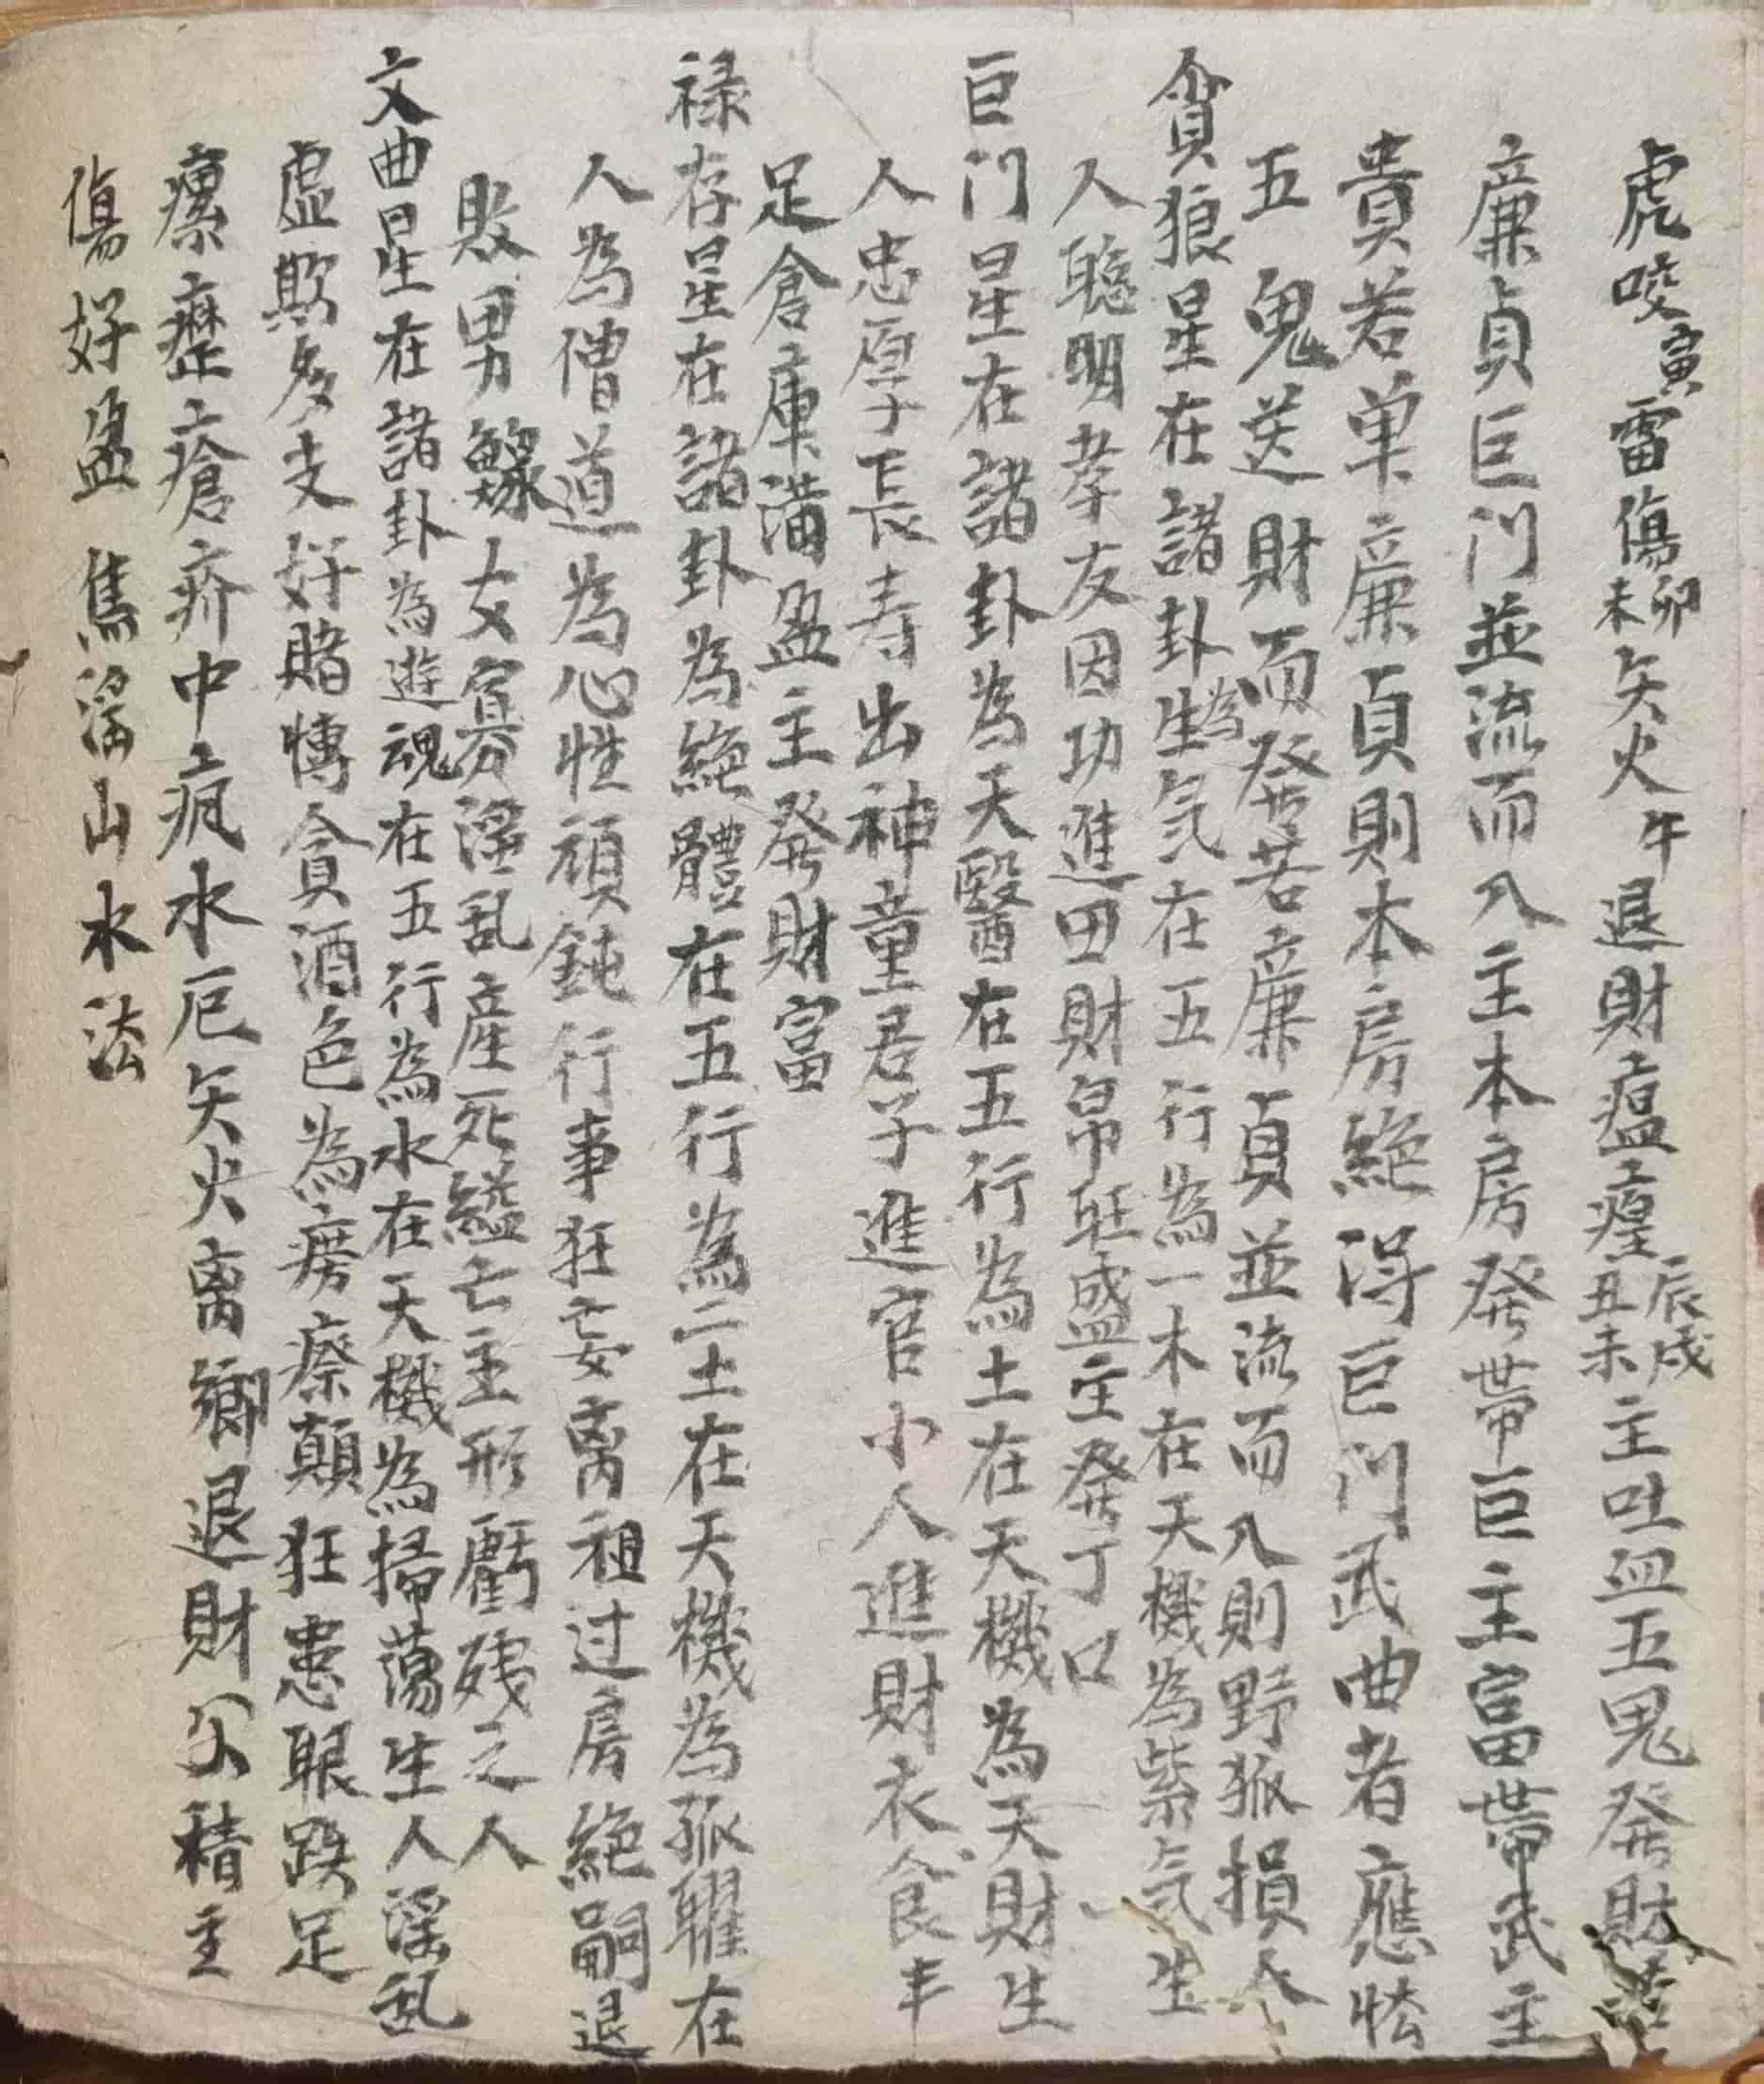 虎咬寅雷傷卯未矢火午退財瘟瘟辰戌丑未主吐血五鬼発財
廉貞巨门並流而入主本房発帶巨主富帶武主
贵若单廉貞則本房絶得巨门武曲者應怯
五鬼送財而発若廉貞並流而入則野狐損人
貪狼星在諸卦為生気在五行為一木在天機為紫気生
人聰明孝友因功進田財帛旺盛主発丁口
巨门星在諸卦為天醫在五行為土在天機為天財生
人忠厚長寿出神童君子進官小人進財衣食丰
足倉庫满盈主発財富
禄存星在諸卦為絶體在五行為二土在天機為孤曜在
人為僧道為心性頑鈍行事狂妄离祖过房絶嗣退
敗男鰥女寡淫乱産死縊亡主形虧殘之人
文曲星在諸卦為遊魂在五行為水在天機為掃蕩生人淫乱
虚欺多支好賭慱貪酒色為痨瘵顛狂患眼跌足
瘰癧瘡疥中疯水厄矢火离鄉退財父積主
傷好盈雋淫山水法